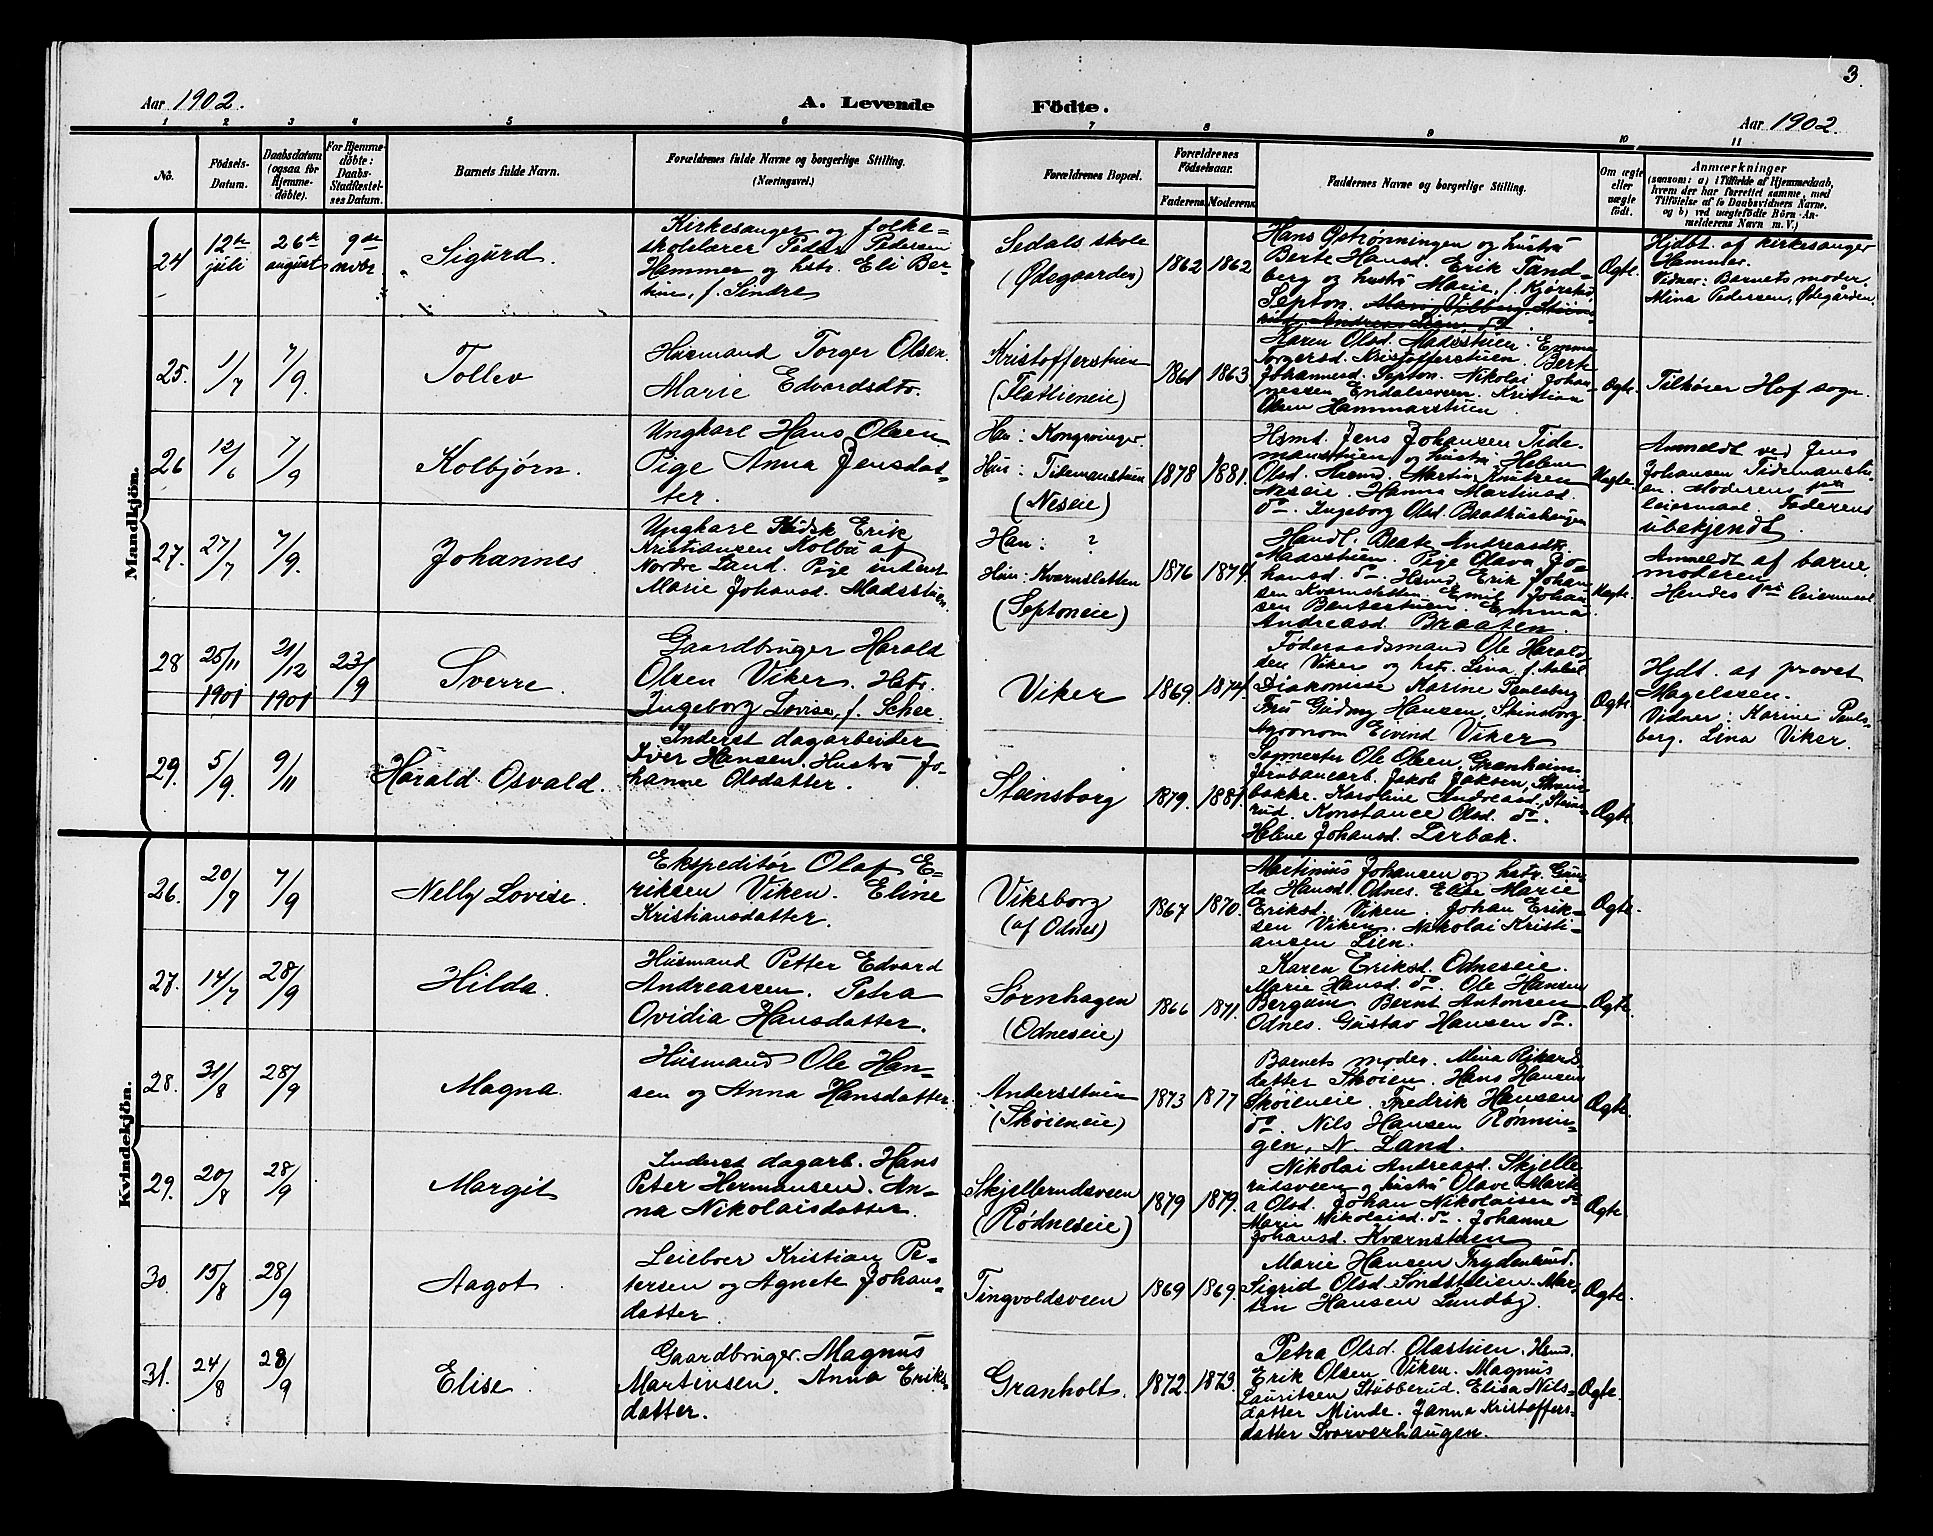 3
Aar 1902. A. Levende Födte. Aar 1902.
1 2 3 4 5 6 7 8 9 10 11
No. Födsels-Datum. Daabsdatum (ogsaa for Hjemme-døbte). For Hjemme-døbte: Daabs-Stadfæstel-ses Datum. Barnets fulde Navn. Forældrenes fulde Navne og borgerlige Stilling. (Næringsvei.) Forældrenes Bopæl. Forældrenes Födselsaar. Faderens Moderens Faddernes Navne og borgerlige Stilling. Om ægte eller uægte födt. Anmærkninger
(saasom: a) i Tilfælde af Hjemmedaab, hvem der har forrettet samme, med Tilföielse af to Daabsvidners Navne, og b) ved uægtefödte Börn Anmelderens Navn m. V.)
Mandkjön.
24 12te juli 26de august 9de novbr Sigurd.
Kirkesanger og folke=
skolelærer Peder Pedersen
Hammer og hstr. Eli Ber-
tine, f. Sindre
Sedals skole
(Ødegaarden)
1862 1862
Hans Østrønningen og hustru
Berte Hansd. Erik Tand-
berg og hustru Marie, f. Kjørstad,
Septon.
Ægte.
Hjdbt. af kirkesanger
Hammer.
Vidner: Barnets moder.
Mina Pedersen, Ødegården.
25. 1/7 7/9. Tollev
Husmand Torger Olsen.
Marie Edvardsdtr.
Kristofferstuen
(Flatlieneie)
1861 1863
Karen Olsd. Madsstuen. Emma
Torgersd. Kristofferstuen. Berte
Johannesd. Septon. Nikolai Johan-
nessen Endalsveen. Kristian
Olsen Hammarstuen
Ægte.
Tilhører Hof sogn.
26 12/6 7/9 Kolbjørn.
Ungkarl Hans Olsen
Pige Anna Jensdat-
ter.
Han: Kongsvinger.
Hun: Tilemanstuen
(Neseie)
1878 1881.
Hsmd. Jens Johansen Tide-
manstuen og hustru Helene
Olsd. Hsmd. Martin Knutsen
Neseie. Hanna Martinsd.
do. Ingeborg Olsd. Baadhushaugen
Uægte.
Anmeldt ved Jens
Johansen Tidemanstu-
en. Moderens 1ste
leiermaal. Faderens
ubekjendt.
27. 27/7 7/9. Johannes
Ungkarl Erik
Kristiansen Kolbu af
Nordre Land. Pige inderst
Marie Johansd. Madsstuen.
Han: ?
Hun: Kværnsletten
(Septoneie)
1876 1874.
Handl. Beate Andreasdtr.
Madsstuen. Pige Olava Jo-
hansd. do. Hsmd. Erik Johan-
sen Kværnsletten. Emil Johan-
sen Bentestuen. Emma
Andreasd. Braaten.
Uægte.
Anmeldt af barne-
moderen
Hendes 1ste leiermaal
28 25/11 1901 21/12 1901 23/9 Sverre.
Gaardbruger Harald
Olsen Viker. Hstr.
Ingeborg Lovise, f. Schee.
Viker
1869. 1874.
Föderaadsmand Ole Harald-
sen Viker og hstr. Lina f.
Diakonisse Karine Paulsberg
Fru Gudny Hansen, Skinsborg.
Agronom Eivind Viker
Ægte.
Hjdt. af provst
Magelssen.
Vidner: Karine Pauls-
berg. Lina Viker.
29. 5/9. 9/11 Harald Osvald.
Inderst dagarbeider
Iver Hansen. Hustru Jo-
hanne Olsdatter.
Stensborg
1879. 1881.
Sagmester Ole Olsen, Granheim.
Jernbanearb. Jakob Jaksen,
bakke. Karoline Andreasd. Stens-
rud. Konstance Olsd. do.
Helene Johansd. Lerbæk.
Ægte.
Kvindekjön.
26. 20/7 7/9 Nelly Lovise.
Ekspeditör Olaf E-
riksen Viken. Eline
Kristiansdatter.
Viksborg
(af Odnes)
1867 1870.
Martinius Johansen og hstr. Gun-
da Hansd. Odnes. Elise Marie
Eriksd. Viken. Johan Erik-
sen Viken. Nikolai Kristi-
ansen Lien.
Ægte.
27. 14/7 28/9 Hilda.
Husmand Petter Edvard
Andreassen. Petra
Ovidia Hansdatter.
Sørnhagen
(Odneseie)
1866 1871.
Karen Eriksd. Odneseie.
Marie Hansd. do. Ole Hansen
Bergum Bernt Antonsen
Odnes. Gustav Hansen do.
Ægte.
28. 31/8 28/9 Magna.
Husmand Ole Han-
sen og Anna Hansdatter.
Andersstuen
(Skøieneie)
1873 1877
Barnets moder. Mina Rikards-
datter Skøien. Hans Hansen
Skøieneie. Fredrik Hansen
do. Nils Hansen Rønnin-
gen, N. Land.
Ægte.
29. 20/8 28/9 Margit
Inderst dagarb. Hans
Peter Hermansen. An-
na Nikolaisdatter.
Skjellerudsveen
(Rødneseie)
1879 1879.
Nikolai Andreasd. Skjelle-
rudsveen og hustru Olave Marte-
a Olsd. Johan Nikolaisen do
Marie Nikolaisd. do. Johanne
Johansd. Kværnstuen
Ægte.
30. 15/8 28/9 Aagot
Leieboer Kristian Pe-
tersen og Agnete Johans-
datter.
Tingvoldsveen
1869 1869.
Marie Hansen Frydenlund.
Sigrid Olsd. Sondstelien. Mar-
tin Hansen Lundby.
Ægte.
31. 24/8 28/9 Elise.
Gaardbruger. Magnus
Martinsen. Anna Eriks-
datter.
Granholt.
1872. 1873.
Petra Olsd. Olastuen. Hsmd.
Erik Olsen Viken. Magnus
Lauritsen Stubberud. Elisa Nils-
datter Minde. Janna Kristoffers-
datter Svarverhaugen.
Ægte.